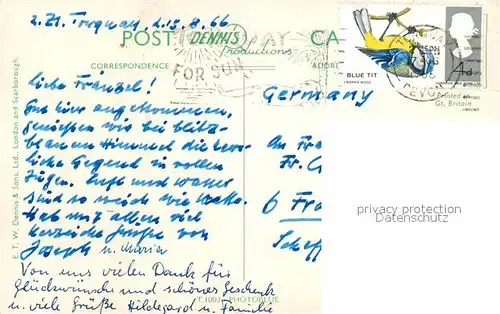 z. Zt. Torquay, d. 13.8.66
POST DENNIS CA
Productions
CORRESPONDENCE
ADDRE
FOR SUN
BLUE TIT
4d
DEVON
Printed in
Gt. Britain
Germany
Liebe Fränzel!
Gut hier angekommen,
genießen wir bei blitz-
blauem Himmel die herr-
liche Gegend in vollen
Zügen. Luft und Wasser
sind so weich wie Watte.
Hab mit allem viel
Herzliche Grüße von
Joseph u. Maria
Von uns vielen Dank für
Glückwünsche und schönes Geschenk
u. viele Grüße Hildegard u. Familie
An Fra
Fr.
6 Fra
Scheff
privacy protection
Datenschutz
E. T. W. Dennis & Sons, Ltd., London and Scarborough.
PHOTOBLUE